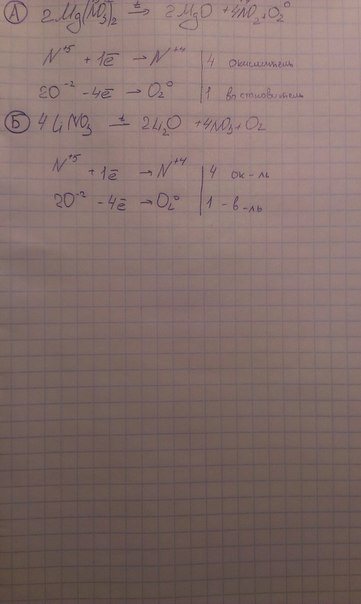 А) 2Mg(NO₃)₂ =ᵗ> 2MgO + 4NO₂ + O₂⁰
N⁺⁵ + 1ē → N⁺⁴ | 4 окислитель
2O⁻² - 4ē → O₂⁰ | 1 восстановитель
Б) 4LiNO₃ =ᵗ> 2Li₂O + 4NO₃ + O₂
N⁺⁵ + 1ē → N⁺⁴ | 4 ок-ль
2O⁻² - 4ē → O₂⁰ | 1 - в-ль